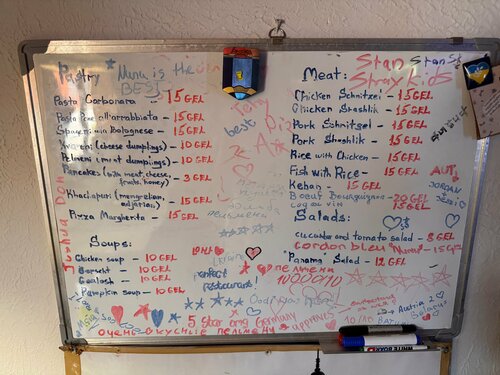 Pastry
Nunu is the
BEST
Pasta Carbonara - 15 GEL
Pasta Pene all'arrabbiata - 15 GEL
Spageti wia bolognese - 15 GEL
Kvareni (cheese dumplings) - 10 GEL
Pelmeni (meat dumplings) - 10 GEL
Pancakes (with meat, cheese, fruits, honey) - 3 GEL
Khachapuri (mengrelian, adjarian) - 15 GEL
Pizza Margherita - 15 GEL
Joshua Doh
Soups:
Chicken soup - 10 GEL
Borscht - 10 GEL
Goulash - 10 GEL
Pumpkin soup - 10 GEL
best
perfect
restaurant!
Meat:
Stan
Stray Kids
Chicken Schnitzel - 15 GEL
Chicken Shashlik - 15 GEL
Pork Schnitzel - 15 GEL
Pork Shashlik - 15 GEL
Rice with Chicken - 15 GEL
Fish with Rice - 15 GEL
Kebab - 15 GEL
Boeuf Bourguignon - 20 GEL
coq au vin 15 GEL
JORDAN
Salads:
cucumber and tomato salad - 8 GEL
Cordon bleu "Nunu" - 15 GEL
"Panama" Salad - 12 GEL
пельмени
10000/10
5 Star ong Germany approves
очень вкусные пельмени
10/10
Austria
WHITE BOARD